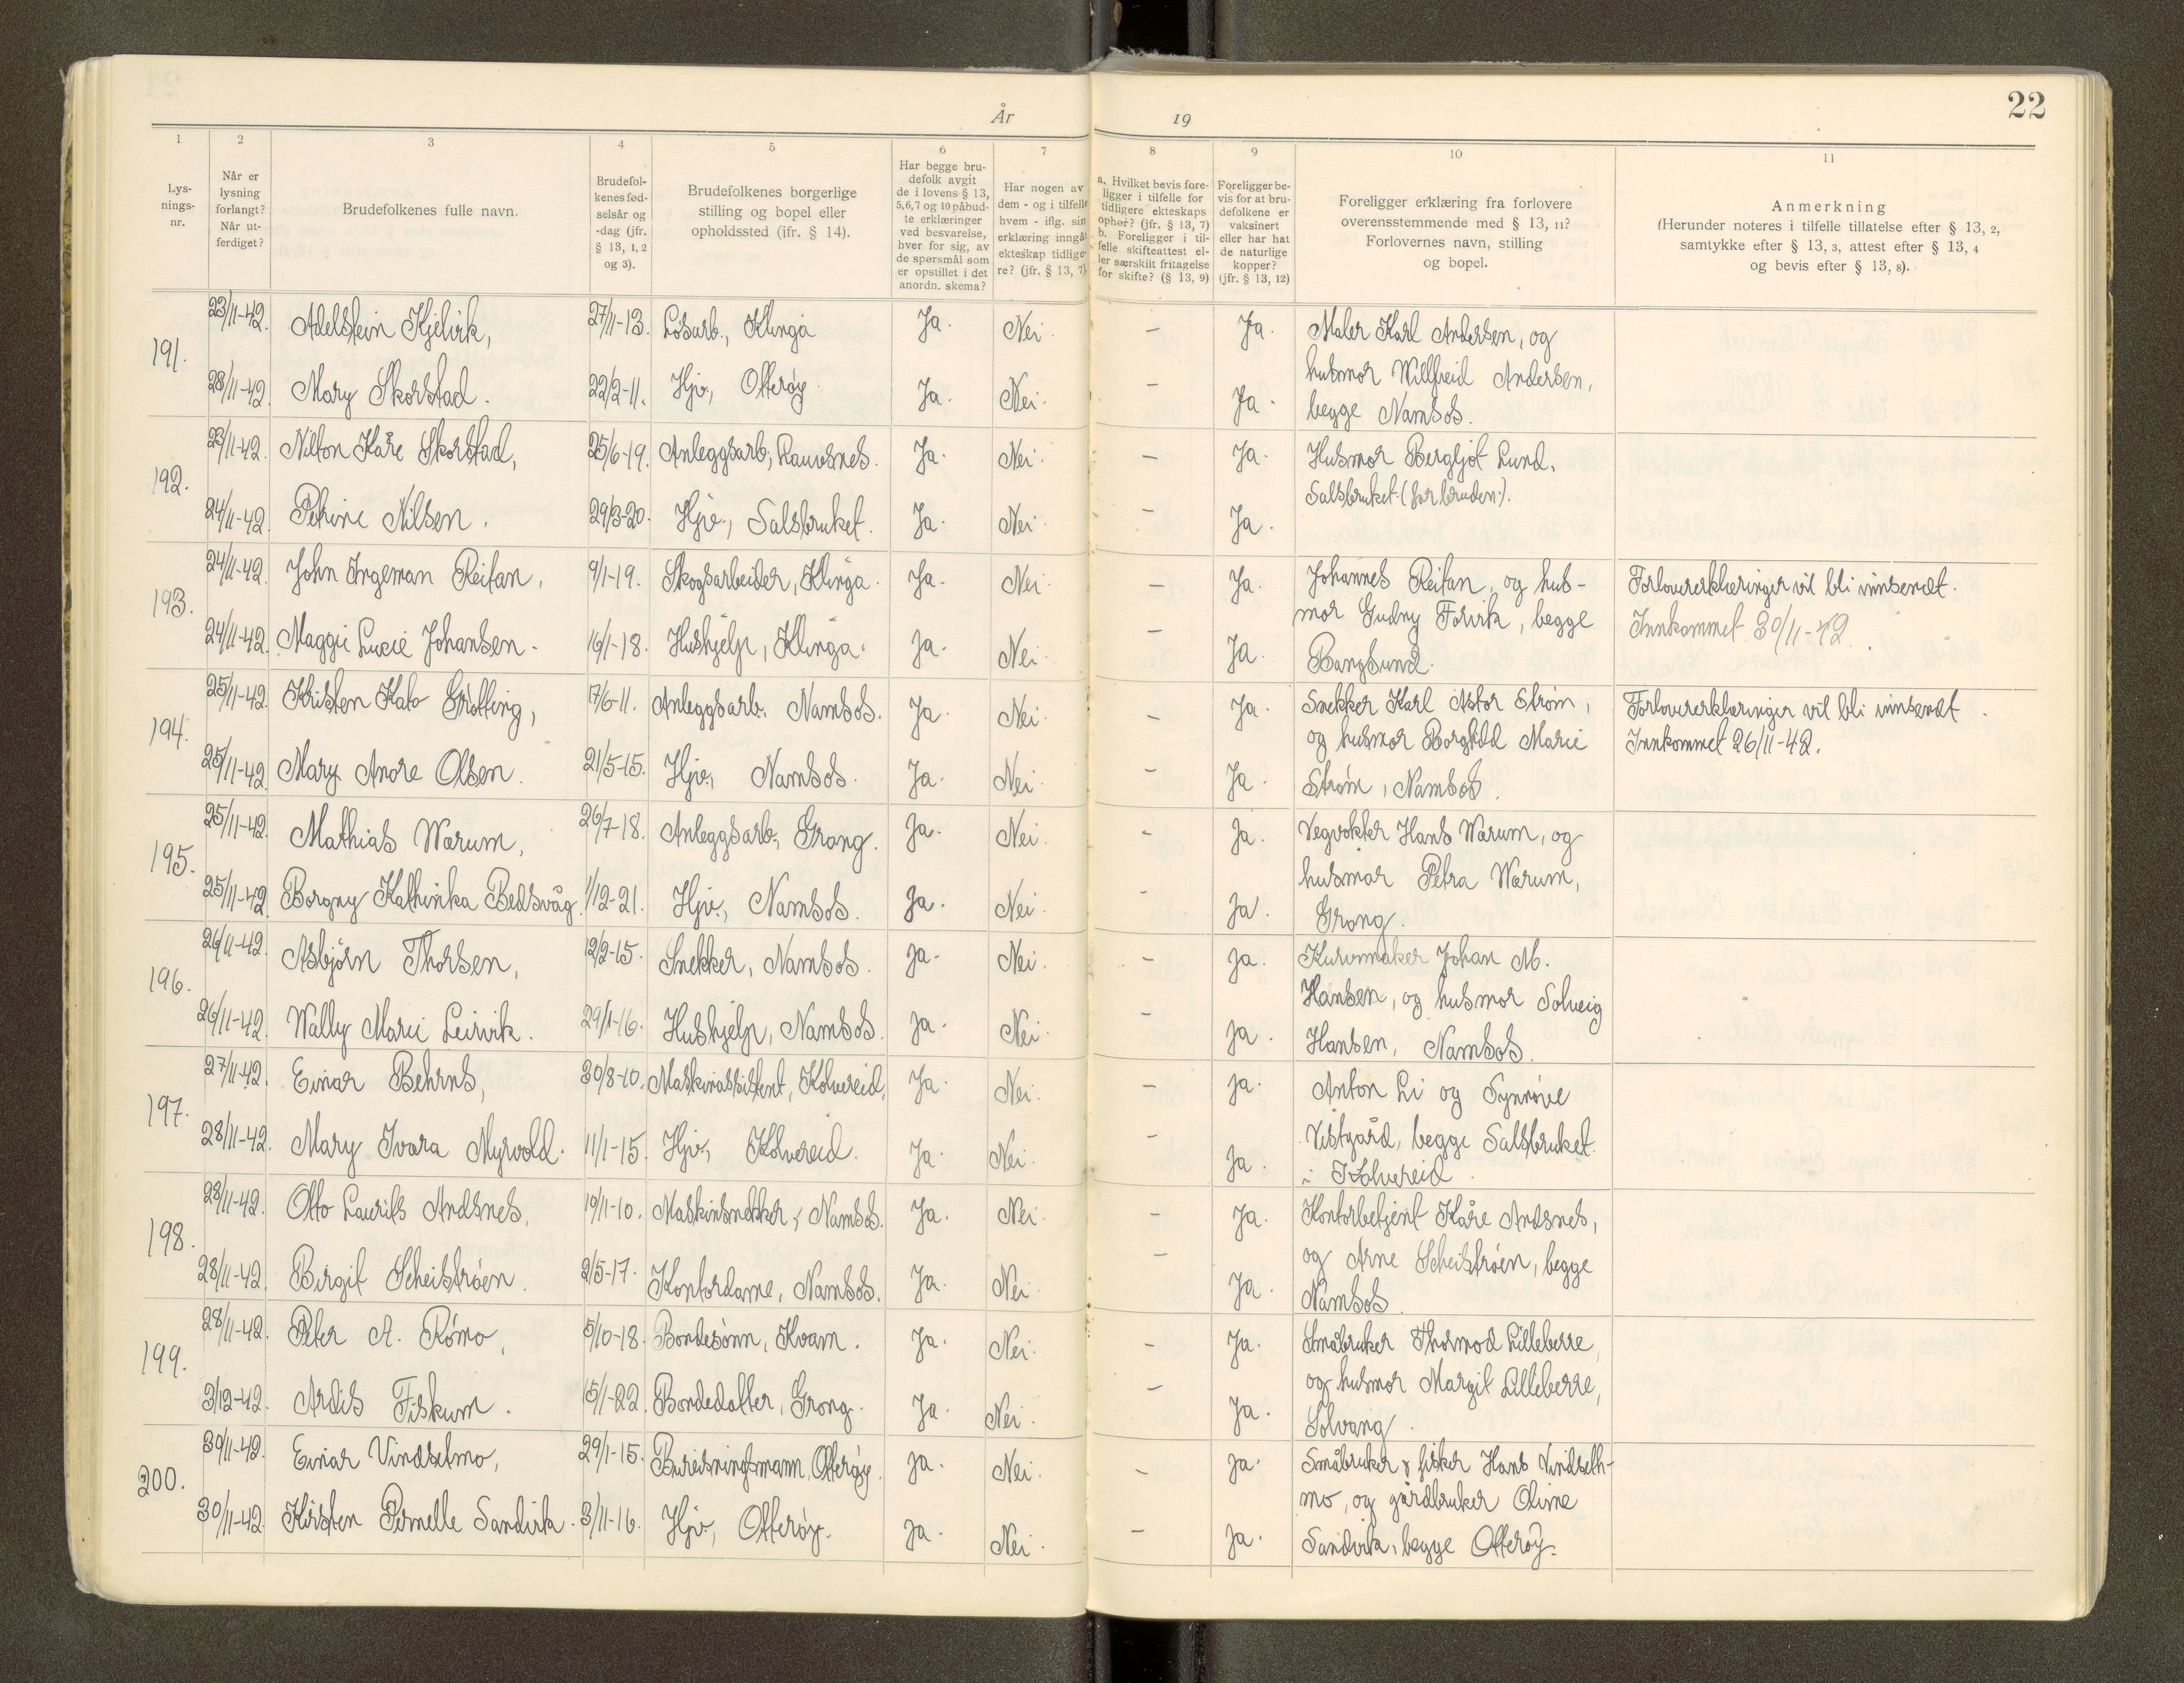 22
År 19
1 2 3 4 5 6 7 8 9 10 11
Lysningsnr.
Når er lysning forlangt? Når utferdiget?
Brudefolkenes fulle navn.
Brudefolkenes fødselsår og -dag (jfr. § 13, 1, 2 og 3).
Brudefolkenes borgerlige stilling og bopel eller opholdssted (jfr. § 14).
Har begge brudefolk avgit de i lovens § 13, 5, 6, 7 og 10 påbudte erklæringer ved besvarelse, hver for sig, av de spørsmål som er opstillet i det anordn. skema?
Har nogen av dem - og i tilfelle hvem - iflg. sin erklæring inngåt ekteskap tidligere? (jfr. § 13, 7)
a. Hvilket bevis foreligger i tilfelle for tidligere ekteskaps ophør? (jfr. § 13, 7) b. Foreligger i tilfelle skifteattest eller særskilt fritagelse for skifte? (§ 13, 9)
Foreligger bevis for at brudefolkene er vaksinert eller har hat de naturlige kopper? (jfr. § 13, 12)
Foreligger erklæring fra forlovere overensstemmende med § 13, 11? Forlovernes navn, stilling og bopel.
Anmerkning
(Herunder noteres i tilfelle tillatelse efter § 13, 2, samtykke efter § 13, 3, attest efter § 13, 4 og bevis efter § 13, 8).
191.
23/11-42. Adelstein Kjelvik, 27/11-13. Løsarb., Klinga Ja. Nei. – Ja. Maler Karl Andersen, og
husmor Willfreid Andersen,
28/11-42 Mary Skorstad. 22/2-11. Hjv., Otterøy Ja. Nei. – Ja. begge Namsos.
192.
23/11-42. Nilton Kåre Skorstad, 25/6-19. Anleggsarb., Rauvsnes. Ja. Nei. – Ja. Husmor Bergljot Lund,
Salsbruket (for bruden).
24/11-42 Petrine Nilsen. 29/3-20. Hjv., Salsbruket. Ja. Nei. – Ja.
193.
24/11-42. John Ingeman Reitan, 9/1-19. Skogsarbeider, Klinga. Ja. Nei. – Ja. Johannes Reitan, og hus- Forlovererklæringer vil bli innsendt.
mor Gudny Forvik, begge Innkommet 30/11-42.
24/11-42. Maggie Lucie Johansen. 16/1-18. Hushjelp, Klinga. Ja. Nei. – Ja. Bangsund.
194.
25/11-42. Kristen Kato Grøtting, 17/6-11. Anleggsarb. Namsos. Ja. Nei. – Ja. Snekker Karl Astor Strøm, Forlovererklæringer vil bli innsendt.
og husmor Borghild Marie Innkommet 26/11-42.
25/11-42 Mary Anore Olsen. 21/5-15. Hjv., Namsos. Ja. Nei. – Ja. Strøm, Namsos.
195.
25/11-42. Mathias Warum, 26/7-18. Anleggsarb., Grong. Ja. Nei. – Ja. Vegvokter Hans Warum, og
husmor Petra Warum,
25/11-42 Borgny Kathinka Bedsvåg. 1/12-21. Hjv., Namsos. Ja. Nei. – Ja. Grong.
196.
26/11-42. Asbjørn Thorsen, 12/2-15. Snekker, Namsos. Ja. Nei. – Ja. Kurvmaker Johan M.
Hansen, og husmor Solveig
26/11-42. Wally Marie Leirvik. 29/1-16. Hushjelp, Namsos. Ja. Nei. – Ja. Hansen, Namsos.
197.
27/11-42. Einar Behrns, 30/8-10. Maskinassistent, Kolvereid. Ja. Nei. – Ja. Anton Li og Synnøve
Vistgård, begge Salsbruket
28/11-42. Mary Ivara Myrvold. 11/1-15. Hjv., Kolvereid. Ja. Nei. – Ja. i Kolvereid.
198.
28/11-42. Otto Laurits Andsnes, 19/11-10. Maskinsnekker, Namsos. Ja. Nei. – Ja. Kontorbetjent Kåre Andsnes,
og Arne Scheistrøen, begge
28/11-42. Birgit Scheistrøen. 2/5-17. Kontordame, Namsos. Ja. Nei. – Ja. Namsos.
199.
28/11-42. Peter A. Rømo, 5/10-18. Bondesønn, Kvam. Ja. Nei. – Ja. Småbruker Thormod Lilleberre,
og husmor Margit Lilleberre,
3/12-42. Ardis Fiskum. 15/1-22. Bondedatter, Grong. Ja. Nei. – Ja. Solvang.
200.
30/11-42. Einar Vindsetmo, 29/1-15. Bureisningsmann, Otterøy. Ja. Nei. – Ja. Småbruker & fisker Hans Vindseth-
mo, og gårdbruker Oline
30/11-42. Kirsten Pernelle Sandvik. 3/11-16. Hjv., Otterøy. Ja. Nei. – Ja. Sandvik, begge Otterøy.